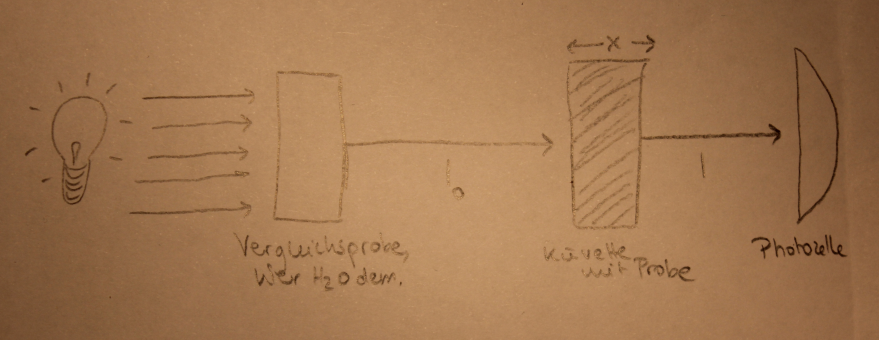 x
I₀
I
Vergleichsprobe,
hier H₂O dem.
Küvette
mit Probe
Photozelle